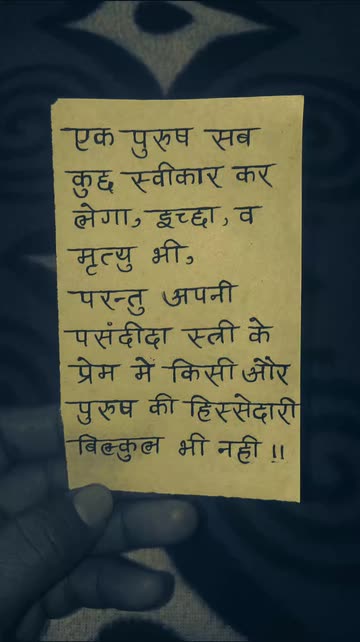 एक पुरुष सब
कुछ स्वीकार कर
लेगा, इच्छा, व
मृत्यु भी,
परन्तु अपनी
पसंदीदा स्त्री के
प्रेम मे किसी और
पुरुष की हिस्सेदारी
बिल्कुल भी नही !!